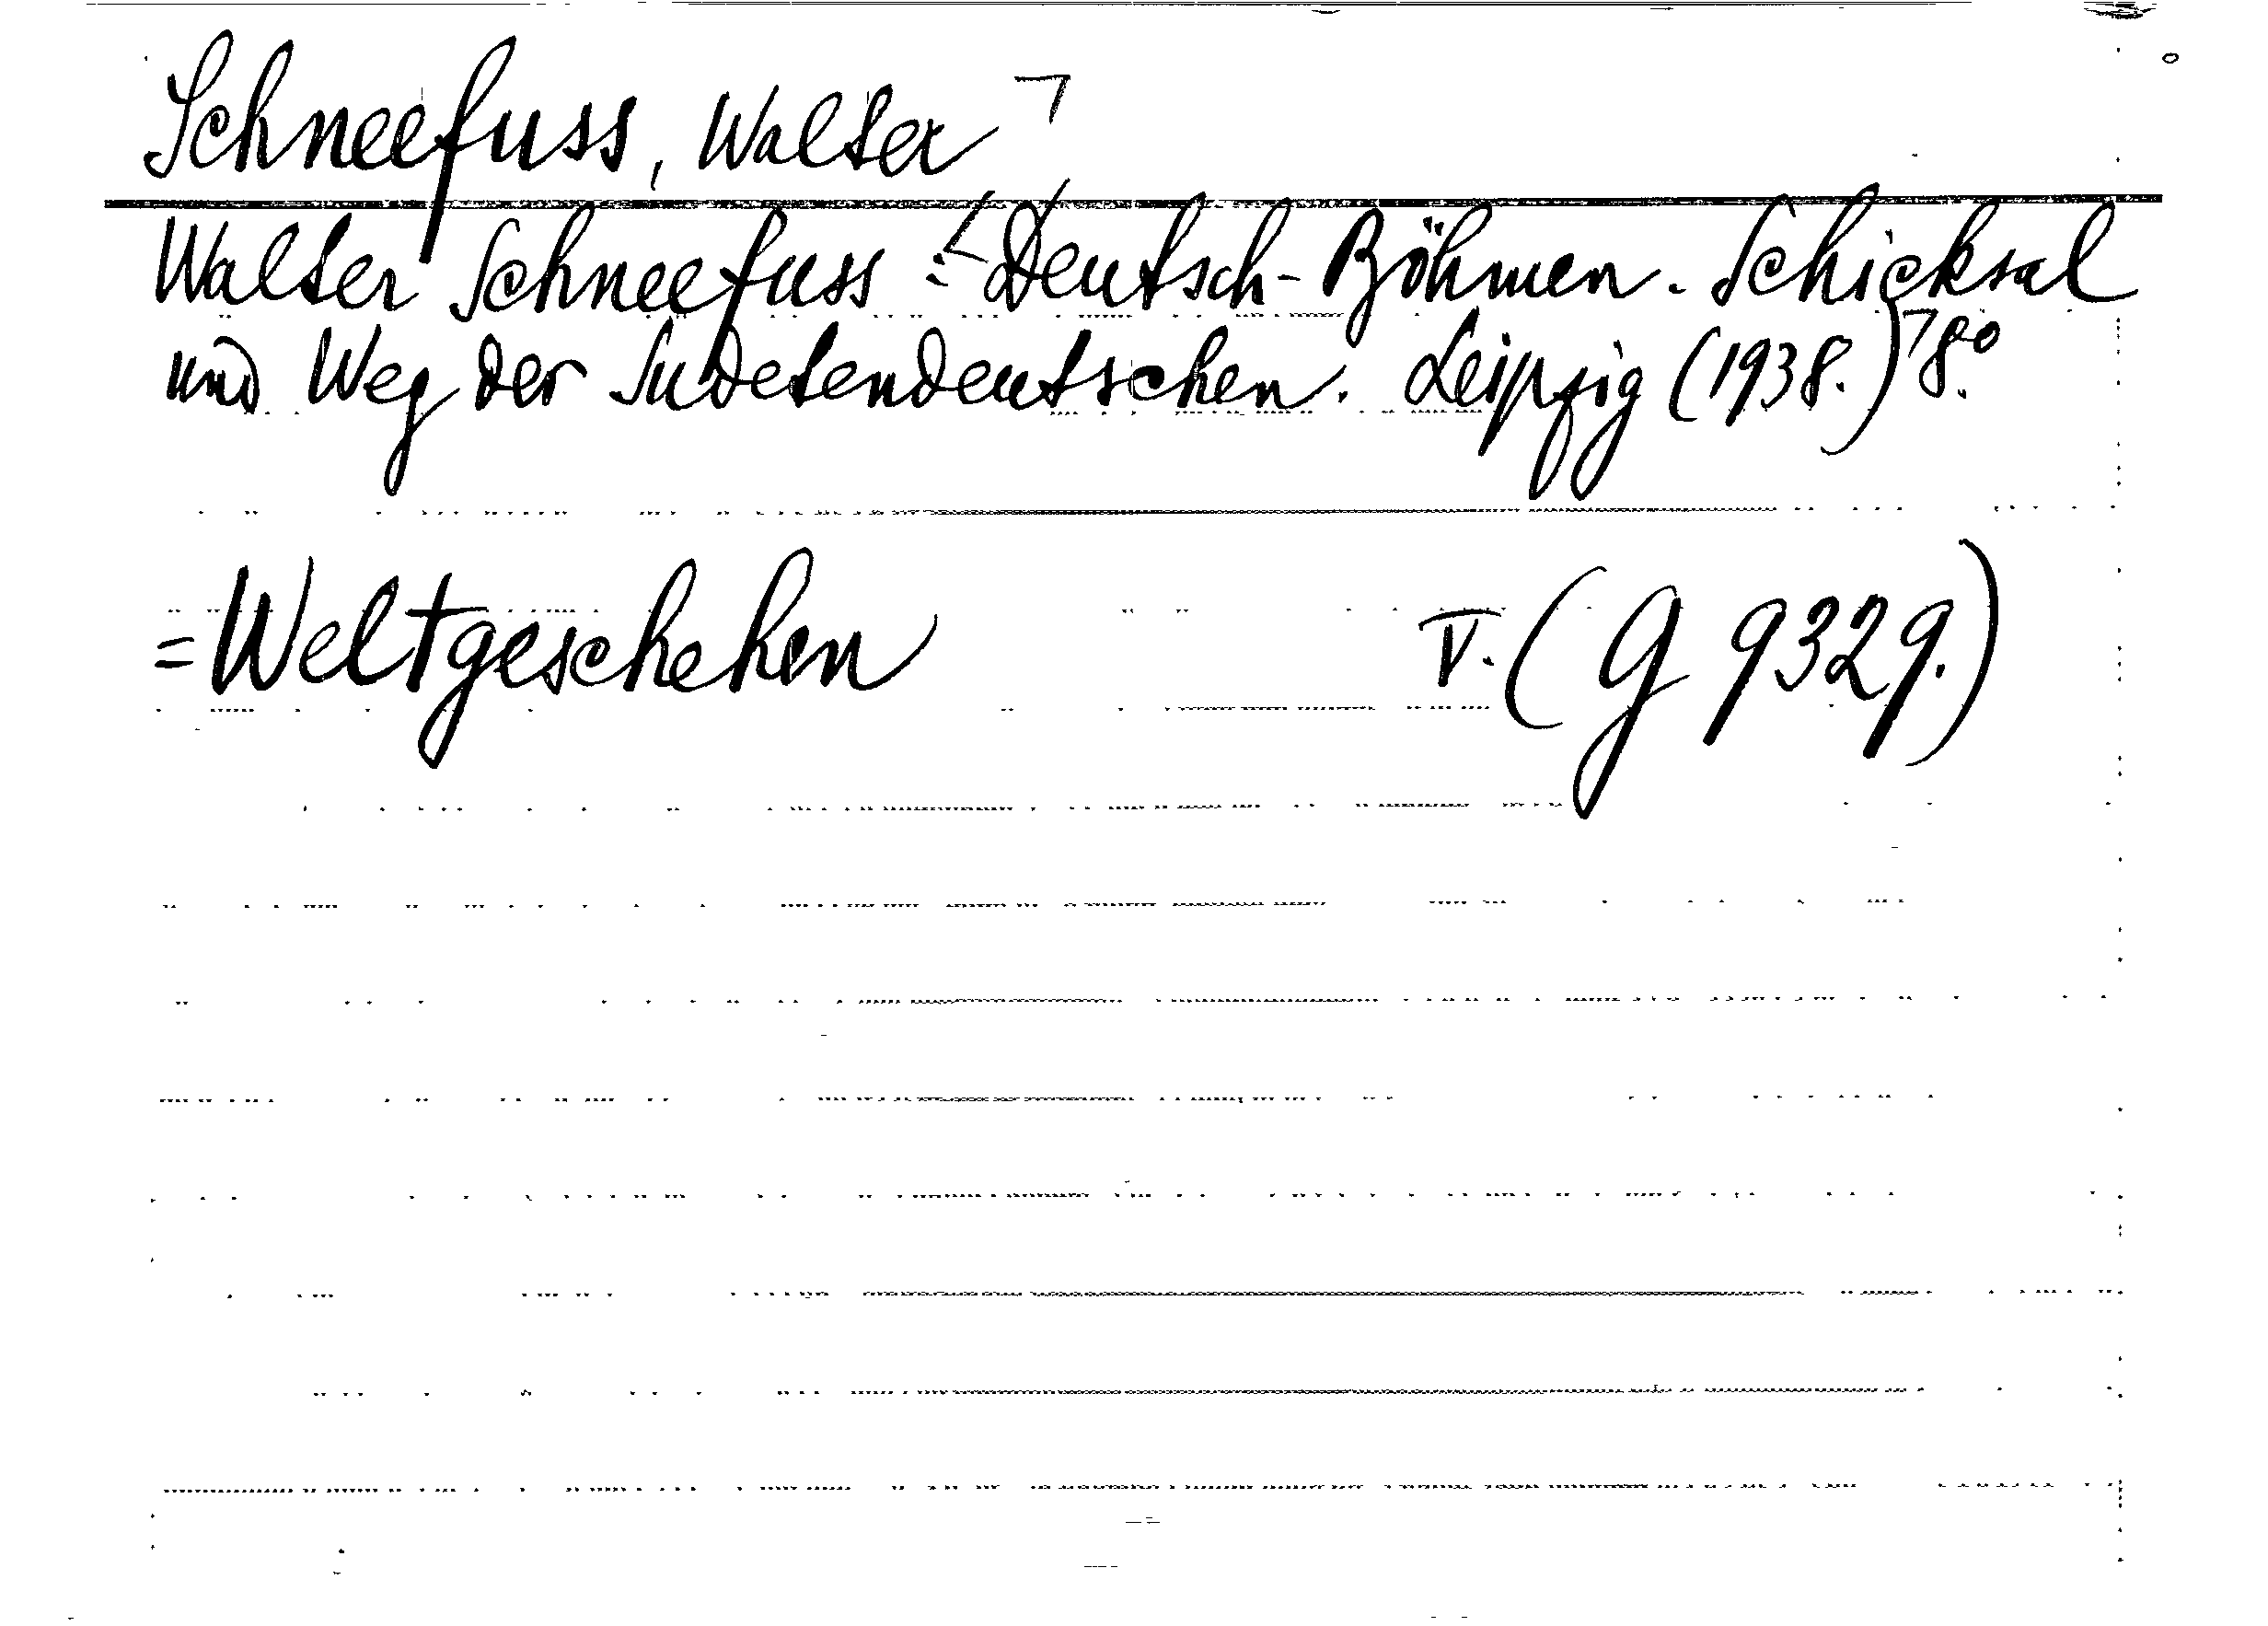 Schneefuss, Walter ¬
Walter Schneefuss: Deutsch-Böhmen. Schicksal
und Weg der Sudetendeutschen. Leipzig (1938.) 8°.
=Weltgeschehen V. (G 9329.)